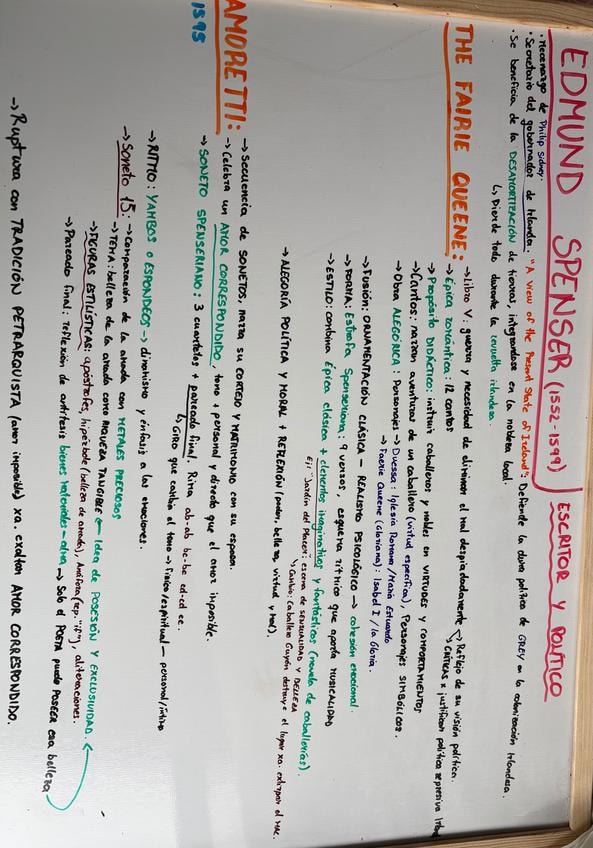 EDMUND SPENSER (1552-1599) ESCRITOR Y POLÍTICO
· Mecenazgo de Philip Sidney.
· Secretario del gobernador de Irlanda. "A View of the Present State of Ireland": Defiende la dura política de GREY en la colonización Irlandesa.
· Se beneficia de la DESAMORTIZACIÓN de tierras, integrándose en la nobleza local.
↳ Pierde todo durante la revuelta irlandesa.
THE FAIRIE QUEENE:
→ Libro V: guerra y necesidad de eliminar el mal despiadadamente ↔ Reflejo de su visión política.
↳ CRÍTICAS x justificar política represiva
→ Épica romántica: 12 cantos
→ Propósito DIDÁCTICO: instruir caballeros y nobles en virtudes y comportamientos
→ Cantos: narran aventuras de un caballero (virtud específica), Personajes SIMBÓLICOS.
→ Obra ALEGÓRICA: Personajes → Duessa: Iglesia Romana/María Estuardo
→ Faerie Queene (Gloriana): Isabel I / la Gloria.
→ Fusión: ORNAMENTACIÓN CLÁSICA – REALISMO PSICOLÓGICO → cohesión emocional.
→ FORMA: Estrofa Spenseriana: 9 versos, esquema rítmico que aporta MUSICALIDAD
→ ESTILO: combina Épica clásica + elementos imaginativos y fantásticos (novela de caballerías).
Ej: "Jardín del Placer": escena de SENSUALIDAD Y BELLEZA
↳ Cambio: Caballero Guyón destruye el lugar xa. extirpar el MAL.
→ ALEGORÍA POLÍTICA Y MORAL + REFLEXIÓN (poder, belleza, virtud y mal).
AMORETTI:
1595
→ Secuencia de SONETOS, narra su CORTEJO Y MATRIMONIO con su esposa.
→ Celebra un AMOR CORRESPONDIDO, tono + personal y directo que el amor imposible.
→ SONETO SPENSERIANO: 3 cuartetos + pareado final. Rima ab-ab bc-bc cd-cd ee.
↳ GIRO que cambia el tono → físico/espiritual – personal/íntimo
→ RITMO: YAMBOS O ESPONDEOS → dinamismo y énfasis a las emociones.
→ Soneto 15: → Comparación de la amada con METALES PRECIOSOS
→ TEMA: belleza de la amada como RIQUEZA TANGIBLE ← Idea de POSESIÓN Y EXCLUSIVIDAD.
→ FIGURAS ESTILÍSTICAS: apóstrofes, hipérbole (belleza de amada), Anáfora (rep. "if"), aliteraciones.
→ Pareado final: reflexión de antítesis bienes materiales-alma → Solo el POETA puede POSEER esa belleza
→ Ruptura con TRADICIÓN PETRARQUISTA (amor imposible) xa. exaltar AMOR CORRESPONDIDO.